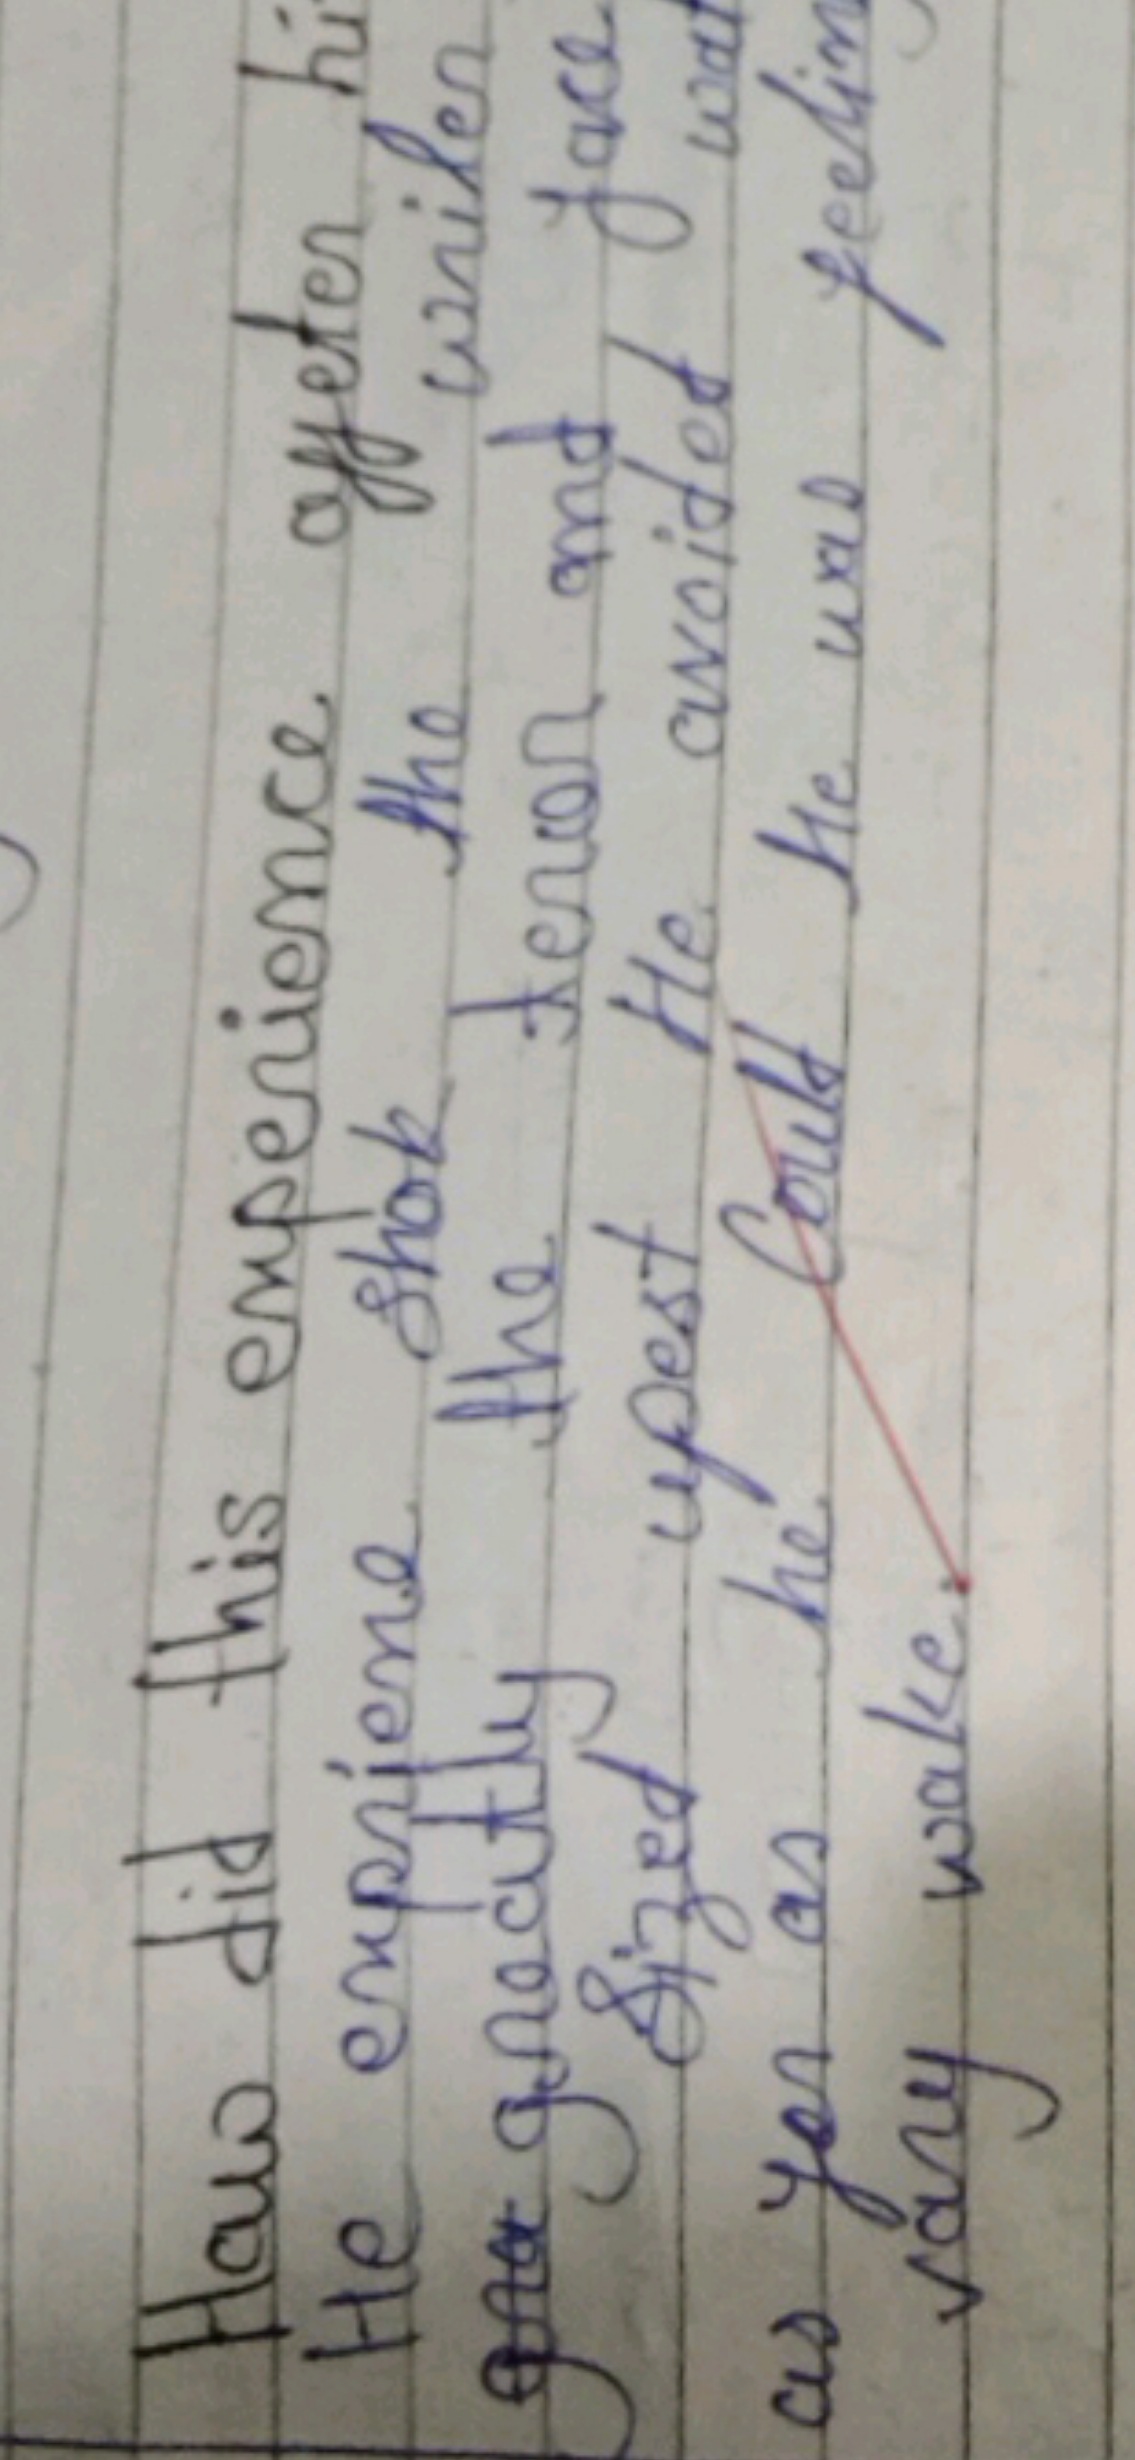 How did this experience affeter hi
He expriene shok the writer
greatly the terror and face
Sized upest He avoided wat
as for as he Could He was feelin
vary wake.